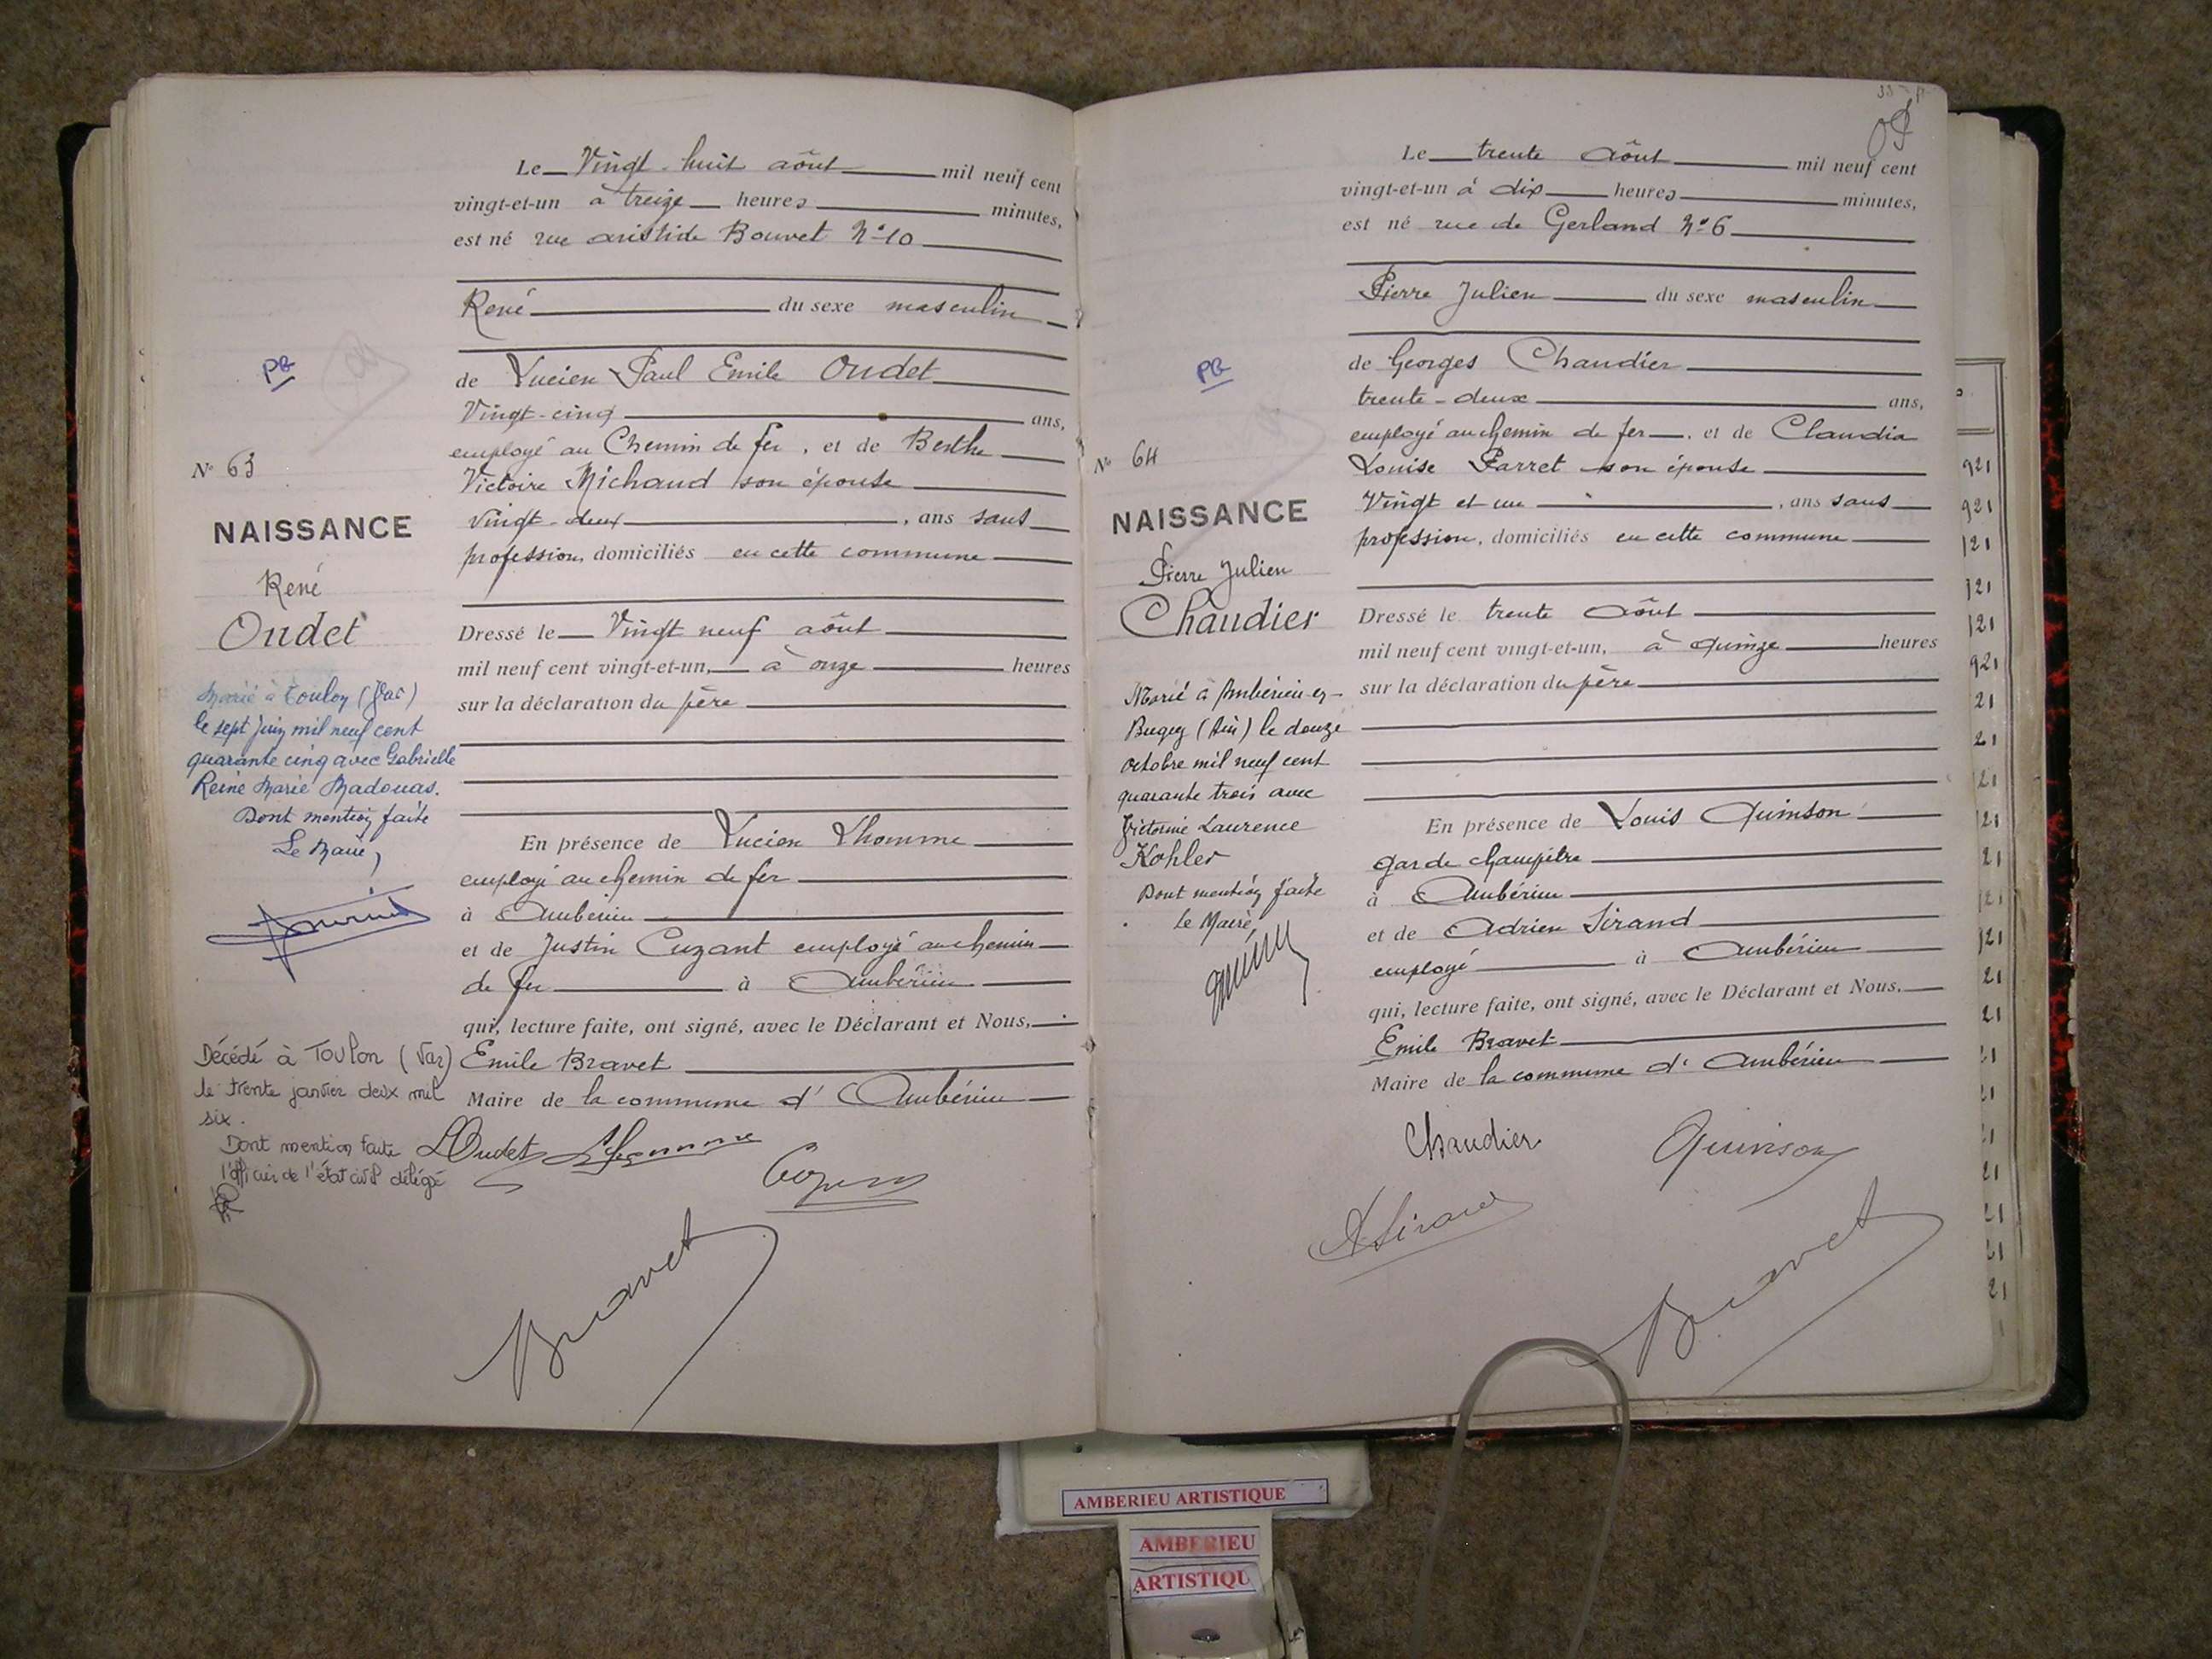 Le Vingt-huit août mil neuf cent
vingt-et-un à treize heures minutes,
est né rue aristide Bouvet N° 10
René du sexe masculin
de Lucien Paul Emile Oudet
Vingt-cinq ans,
employé au Chemin de fer, et de Berthe
Victoire Michaud son épouse
vingt-deux, ans sans
profession, domiciliés en cette commune
Dressé le Vingt neuf août
mil neuf cent vingt-et-un, à onze heures
sur la déclaration du père
En présence de Lucien Lhomme
employé au chemin de fer
à Ambérieu
et de Justin Cuzant employé au chemin
de fer à Ambérieu
qui, lecture faite, ont signé, avec le Déclarant et Nous,
Emile Bravet
Maire de la commune d'Ambérieu
LOudet
Bravet
PB
N° 63
NAISSANCE
René
Oudet
Marié à Toulon (Var)
le sept Juin mil neuf cent
quarante cinq avec Gabrielle
Reine Marie Madouas.
Dont mention faite
Le Maire,
Décédé à Toulon (Var)
le trente janvier deux mil
six.
Dont mention faite
l'officier de l'état civil délégué
Le trente août mil neuf cent
vingt-et-un à dix heures minutes,
est né rue de Gerland N° 6
Pierre Julien du sexe masculin
de Georges Chaudier
trente-deux ans,
employé au chemin de fer, et de Claudia
Louise Parret son épouse
Vingt et un, ans sans
profession, domiciliés en cette commune
Dressé le trente août
mil neuf cent vingt-et-un, à quinze heures
sur la déclaration du père
En présence de Louis Quinson
garde champêtre
à Ambérieu
et de Adrien Sirand
employé à Ambérieu
qui, lecture faite, ont signé, avec le Déclarant et Nous,
Emile Bravet
Maire de la commune d'Ambérieu
Chaudier
Quinson
ASirand
Bravet
PB
N° 64
NAISSANCE
Pierre Julien
Chaudier
Marié à Ambérieu-en-
Bugey (Ain) le douze
octobre mil neuf cent
quarante trois avec
Victorine Laurence
Kohler
Dont mention faite
Le Maire,
AMBERIEU ARTISTIQUE
AMBERIEU
ARTISTIQU